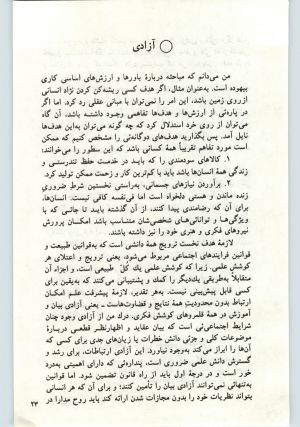 ○ آزادی
من می‌دانم که مباحثه دربارهٔ باورها و ارزش‌های اساسی کاری
بیهوده است. به‌عنوان مثال، اگر هدف کسی ریشه‌کن کردن نژاد انسانی
از روی زمین باشد، این امر را نمی‌توان با مبانی عقلی رد کرد. اما اگر
در پاره‌ئی از ارزش‌ها و هدف‌ها تفاهمی وجود داشته باشد، آن گاه
می‌توان از روی خرد استدلال کرد که چه گونه می‌توان به‌این هدف‌ها
نایل آمد. پس بگذارید هدف‌های دوگانه‌ئی را مشخص کنیم که ممکن
است مورد تفاهم تقریباً همهٔ کسانی باشد که این سطور را می‌خوانند:
۱. کالاهای سودمندی را که باید در خدمت حفظ تندرستی و
زندگی همهٔ انسان‌ها باشد باید با کم‌ترین کار و زحمت ممکن تولید کرد.
۲. برآوردن نیازهای جسمانی، به‌راستی نخستین شرط ضروری
زنده ماندن و هستی دلخواه است اما فی‌نفسه کافی نیست. انسان‌ها،
برای آن که رضامندی پیدا کنند، از آن گذشته باید تا جائی که با
ویژگی‌ها و توانائی‌های شخصی‌شان متناسب باشد امکان پرورش
نیروهای فکری و هنری خود را نیز داشته باشند.
لازمهٔ هدف نخست ترویج همهٔ دانشی است که به‌قوانین طبیعت و
قوانین فرایندهای اجتماعی مربوط می‌شود، یعنی ترویج و اعتلای هر
کوشش علمی. زیرا که کوشش علمی یك کلّ طبیعی است، و اجزاء آن
متقابلاً به‌طریقی یك‌دیگر را کمك و پشتیبانی می‌کنند که به‌یقین برای
کسی قابل پیش‌بینی نیست. به‌هر تقدیر، لازمهٔ پیشرفت علم امکان
ارتباط بدون محدودیت همهٔ نتایج و قضاوت‌هاست – یعنی آزادی بیان و
آموزش در همهٔ قلمروهای کوشش فکری. درك من از آزادی وجود چنان
شرایط اجتماعی‌ئی است که بیان عقاید و اظهارنظر قطعی دربارهٔ
موضوعات کلی و جزئی دانش خطرات یا زیان‌های جدی برای کسی که
آن‌ها را ابراز می‌کند به‌وجود نیاورد. این آزادی ارتباطات، برای رشد و
گسترش دانش علمی ضروری است، پنداره‌ئی که دارای اهمیتی به‌درد
خور است و در درجهٔ اول باید از راه قانون تضمین شود. اما قوانین
به‌تنهائی نمی‌توانند آزادی بیان را تأمین کنند؛ و برای آن که هر انسانی
بتواند نظریات خود را بدون مجازات شدن ارائه کند باید روح مدارا در
۲۳